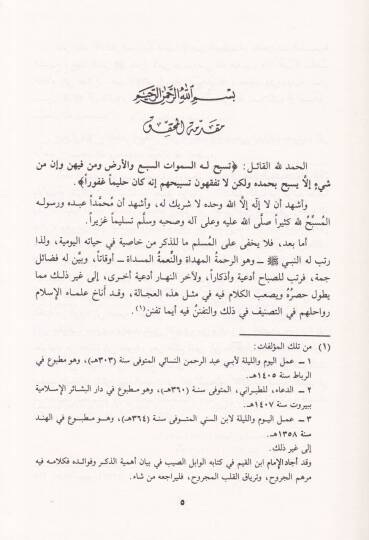 بسم الله الرحمن الرحيم
مقدمة المحقق
الحمد لله القائل: ﴿تسبح له السموات السبع والأرض ومن فيهن وإن من
شيءٍ إلا يسبح بحمده ولكن لا تفقهون تسبيحهم إنه كان حليماً غفوراً﴾.
وأشهد أن لا إله إلا الله وحده لا شريك له، وأشهد أن مُحمَّداً عبده ورسوله
المُسبِّحُ لله كثيراً صلَّى الله عليه وعلى آله وصحبه وسلَّم تسليماً غزيراً.
أما بعد، فلا يخفى على المُسلم ما للذكر من خاصية في حياته اليومية، ولذا
رتب له النبي ﷺ ـ وهو الرحمةُ المهداة والنِّعمةُ المسداة ـ أوقاتاً، وبيَّن له فضائل
جمة، فرتب للصباح أدعية وأذكاراً، ولآخر النهار أدعية أخرى، إلى غير ذلك مما
يطول حصرُهُ ويصعب الكلام فيه في مثل هذه العجالة، وقد أناخ علماء الإسلام
رواحلهم في التصنيف في ذلك والتفننُ فيه أيما تفنن(١).
(١) من تلك المؤلفات:
١ ـ عمل اليوم والليلة لأبي عبد الرحمن النسائي المتوفى سنة (٣٠٣هـ)، وهو مطبوع في
الرباط سنة ١٤٠٥هـ.
٢ ـ الدعاء، للطبراني، المتوفى سنة (٣٦٠هـ)، وهو مطبوع في دار البشائر الإسلامية
ببيروت سنة ١٤٠٧هـ.
٣ ـ عمل اليوم والليلة لابن السني المتوفى سنة (٣٦٤هـ)، وهو مطبوع في الهند
سنة ١٣٥٨هـ.
إلى غير ذلك.
وقد أجاد الإمام ابن القيم في كتابه الوابل الصيب في بيان أهمية الذكر وفوائده فكلامه فيه
مرهم الجروح، وترياق القلب المجروح، فليراجعه من شاء.
٥